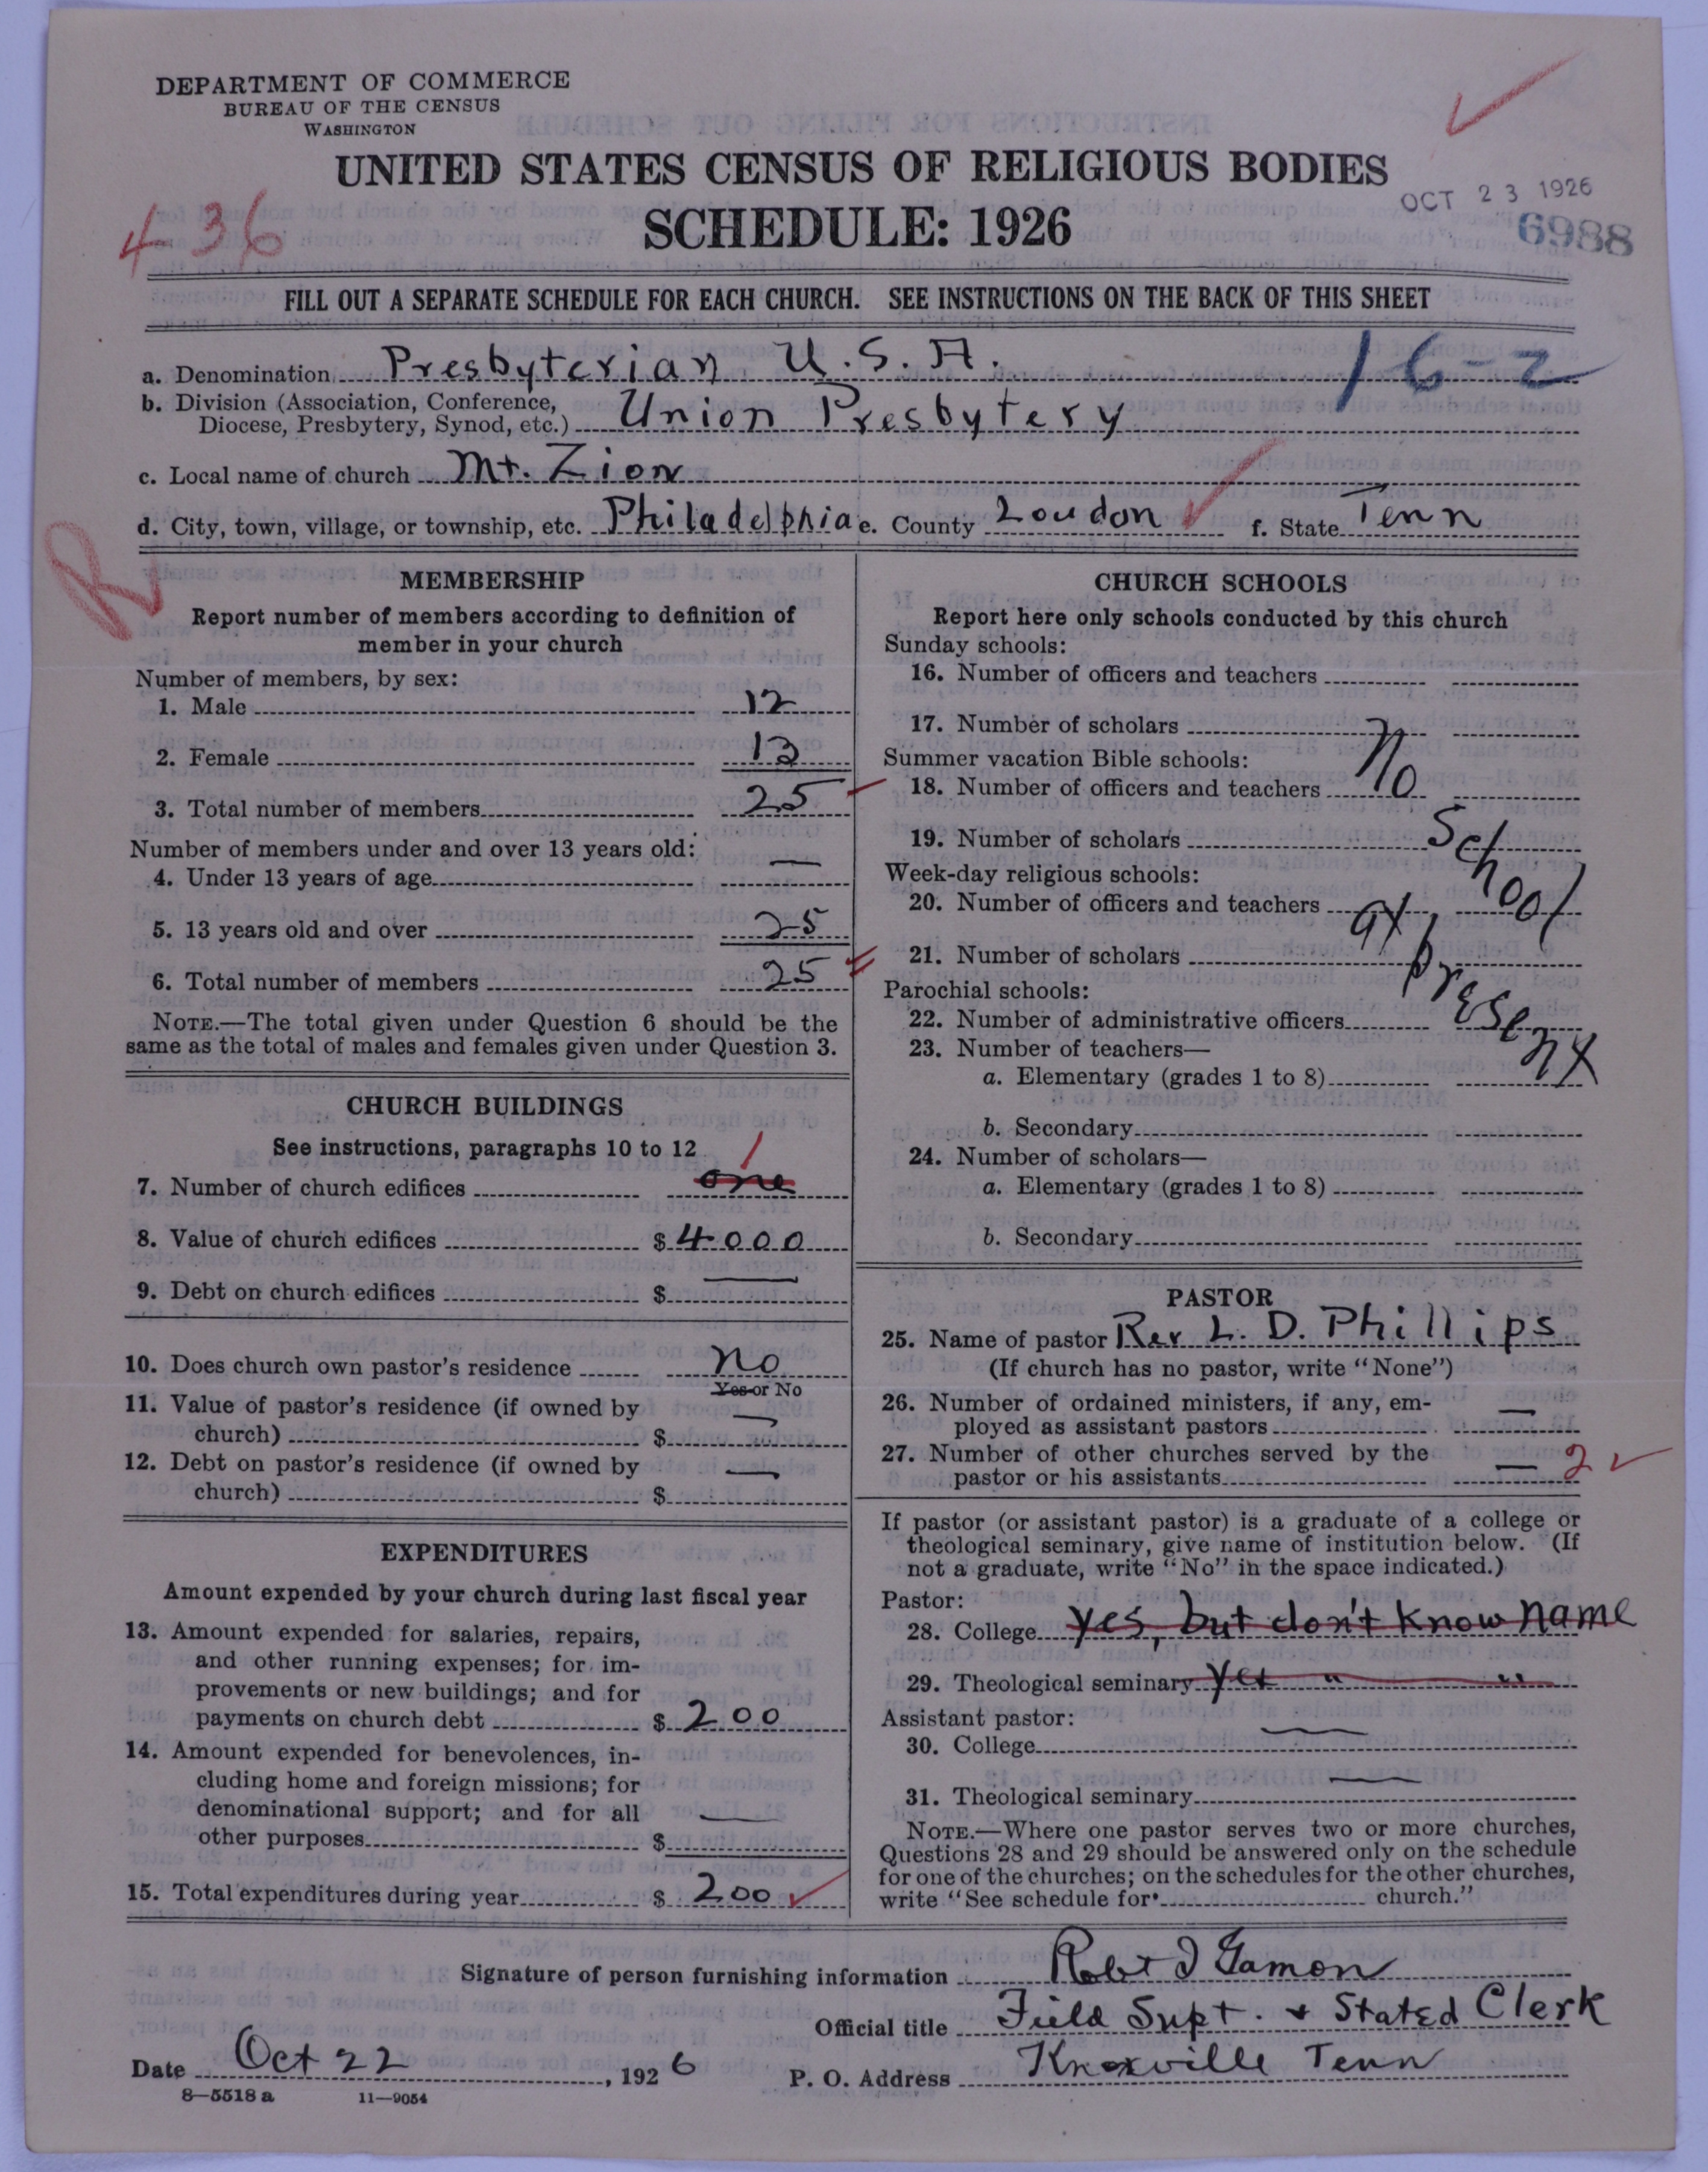 DEPARTMENT OF COMMERCE
BUREAU OF THE CENSUS
WASHINGTON
UNITED STATES CENSUS OF RELIGIOUS BODIES
SCHEDULE: 1926
OCT 23 1926
6988
436
FILL OUT A SEPARATE SCHEDULE FOR EACH CHURCH. SEE INSTRUCTIONS ON THE BACK OF THIS SHEET
16-2
a. Denomination Presbyterian U.S.A.
b. Division (Association, Conference,
Diocese, Presbytery, Synod, etc.) Union Presbytery
c. Local name of church Mt. Zion
d. City, town, village, or township, etc. Philadelphia e. County Loudon f. State Tenn
R
MEMBERSHIP
Report number of members according to definition of
member in your church
Number of members, by sex:
1. Male 12
2. Female 13
3. Total number of members 25
Number of members under and over 13 years old:
4. Under 13 years of age —
5. 13 years old and over 25
6. Total number of members 25
NOTE.—The total given under Question 6 should be the
same as the total of males and females given under Question 3.
CHURCH BUILDINGS
See instructions, paragraphs 10 to 12
7. Number of church edifices one 1
8. Value of church edifices $ 4000
9. Debt on church edifices $ —
10. Does church own pastor's residence no
Yes or No
11. Value of pastor's residence (if owned by
church) $ —
12. Debt on pastor's residence (if owned by
church) $ —
EXPENDITURES
Amount expended by your church during last fiscal year
13. Amount expended for salaries, repairs,
and other running expenses; for im-
provements or new buildings; and for
payments on church debt $ 200
14. Amount expended for benevolences, in-
cluding home and foreign missions; for
denominational support; and for all
other purposes $ —
15. Total expenditures during year $ 200
CHURCH SCHOOLS
Report here only schools conducted by this church
Sunday schools:
16. Number of officers and teachers
17. Number of scholars
Summer vacation Bible schools:
18. Number of officers and teachers
19. Number of scholars
Week-day religious schools:
20. Number of officers and teachers
21. Number of scholars
Parochial schools:
22. Number of administrative officers
23. Number of teachers—
a. Elementary (grades 1 to 8)
b. Secondary
24. Number of scholars—
a. Elementary (grades 1 to 8)
b. Secondary
No
School
at
present
PASTOR
25. Name of pastor Rev L. D. Phillips
(If church has no pastor, write "None")
26. Number of ordained ministers, if any, em-
ployed as assistant pastors —
27. Number of other churches served by the
pastor or his assistants — 2
If pastor (or assistant pastor) is a graduate of a college or
theological seminary, give name of institution below. (If
not a graduate, write "No" in the space indicated.)
Pastor:
28. College yes, but don't know name
29. Theological seminary yes " "
Assistant pastor:
30. College —
31. Theological seminary —
NOTE.—Where one pastor serves two or more churches,
Questions 28 and 29 should be answered only on the schedule
for one of the churches; on the schedules for the other churches,
write "See schedule for church."
Signature of person furnishing information Robt I Gamon
Official title Field Supt. & Stated Clerk
Date Oct 22, 1926 P. O. Address Knoxville Tenn
8—5518 a 11—9054